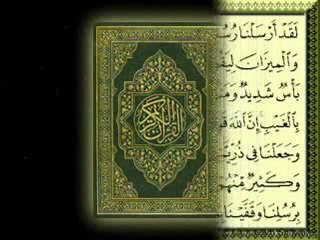 القرآن الكريم
لَقَدْ أَرْسَلْنَا رُسُلَ
وَالْمِيزَانَ لِيَقُ
بَأْسٌ شَدِيدٌ وَمَ
بِالْغَيْبِ إِنَّ اللَّهَ قَ
وَجَعَلْنَا فِي ذُرِّيَّ
وَكَثِيرٌ مِّنْهُمْ
بِرُسُلِنَا وَقَفَّيْنَا